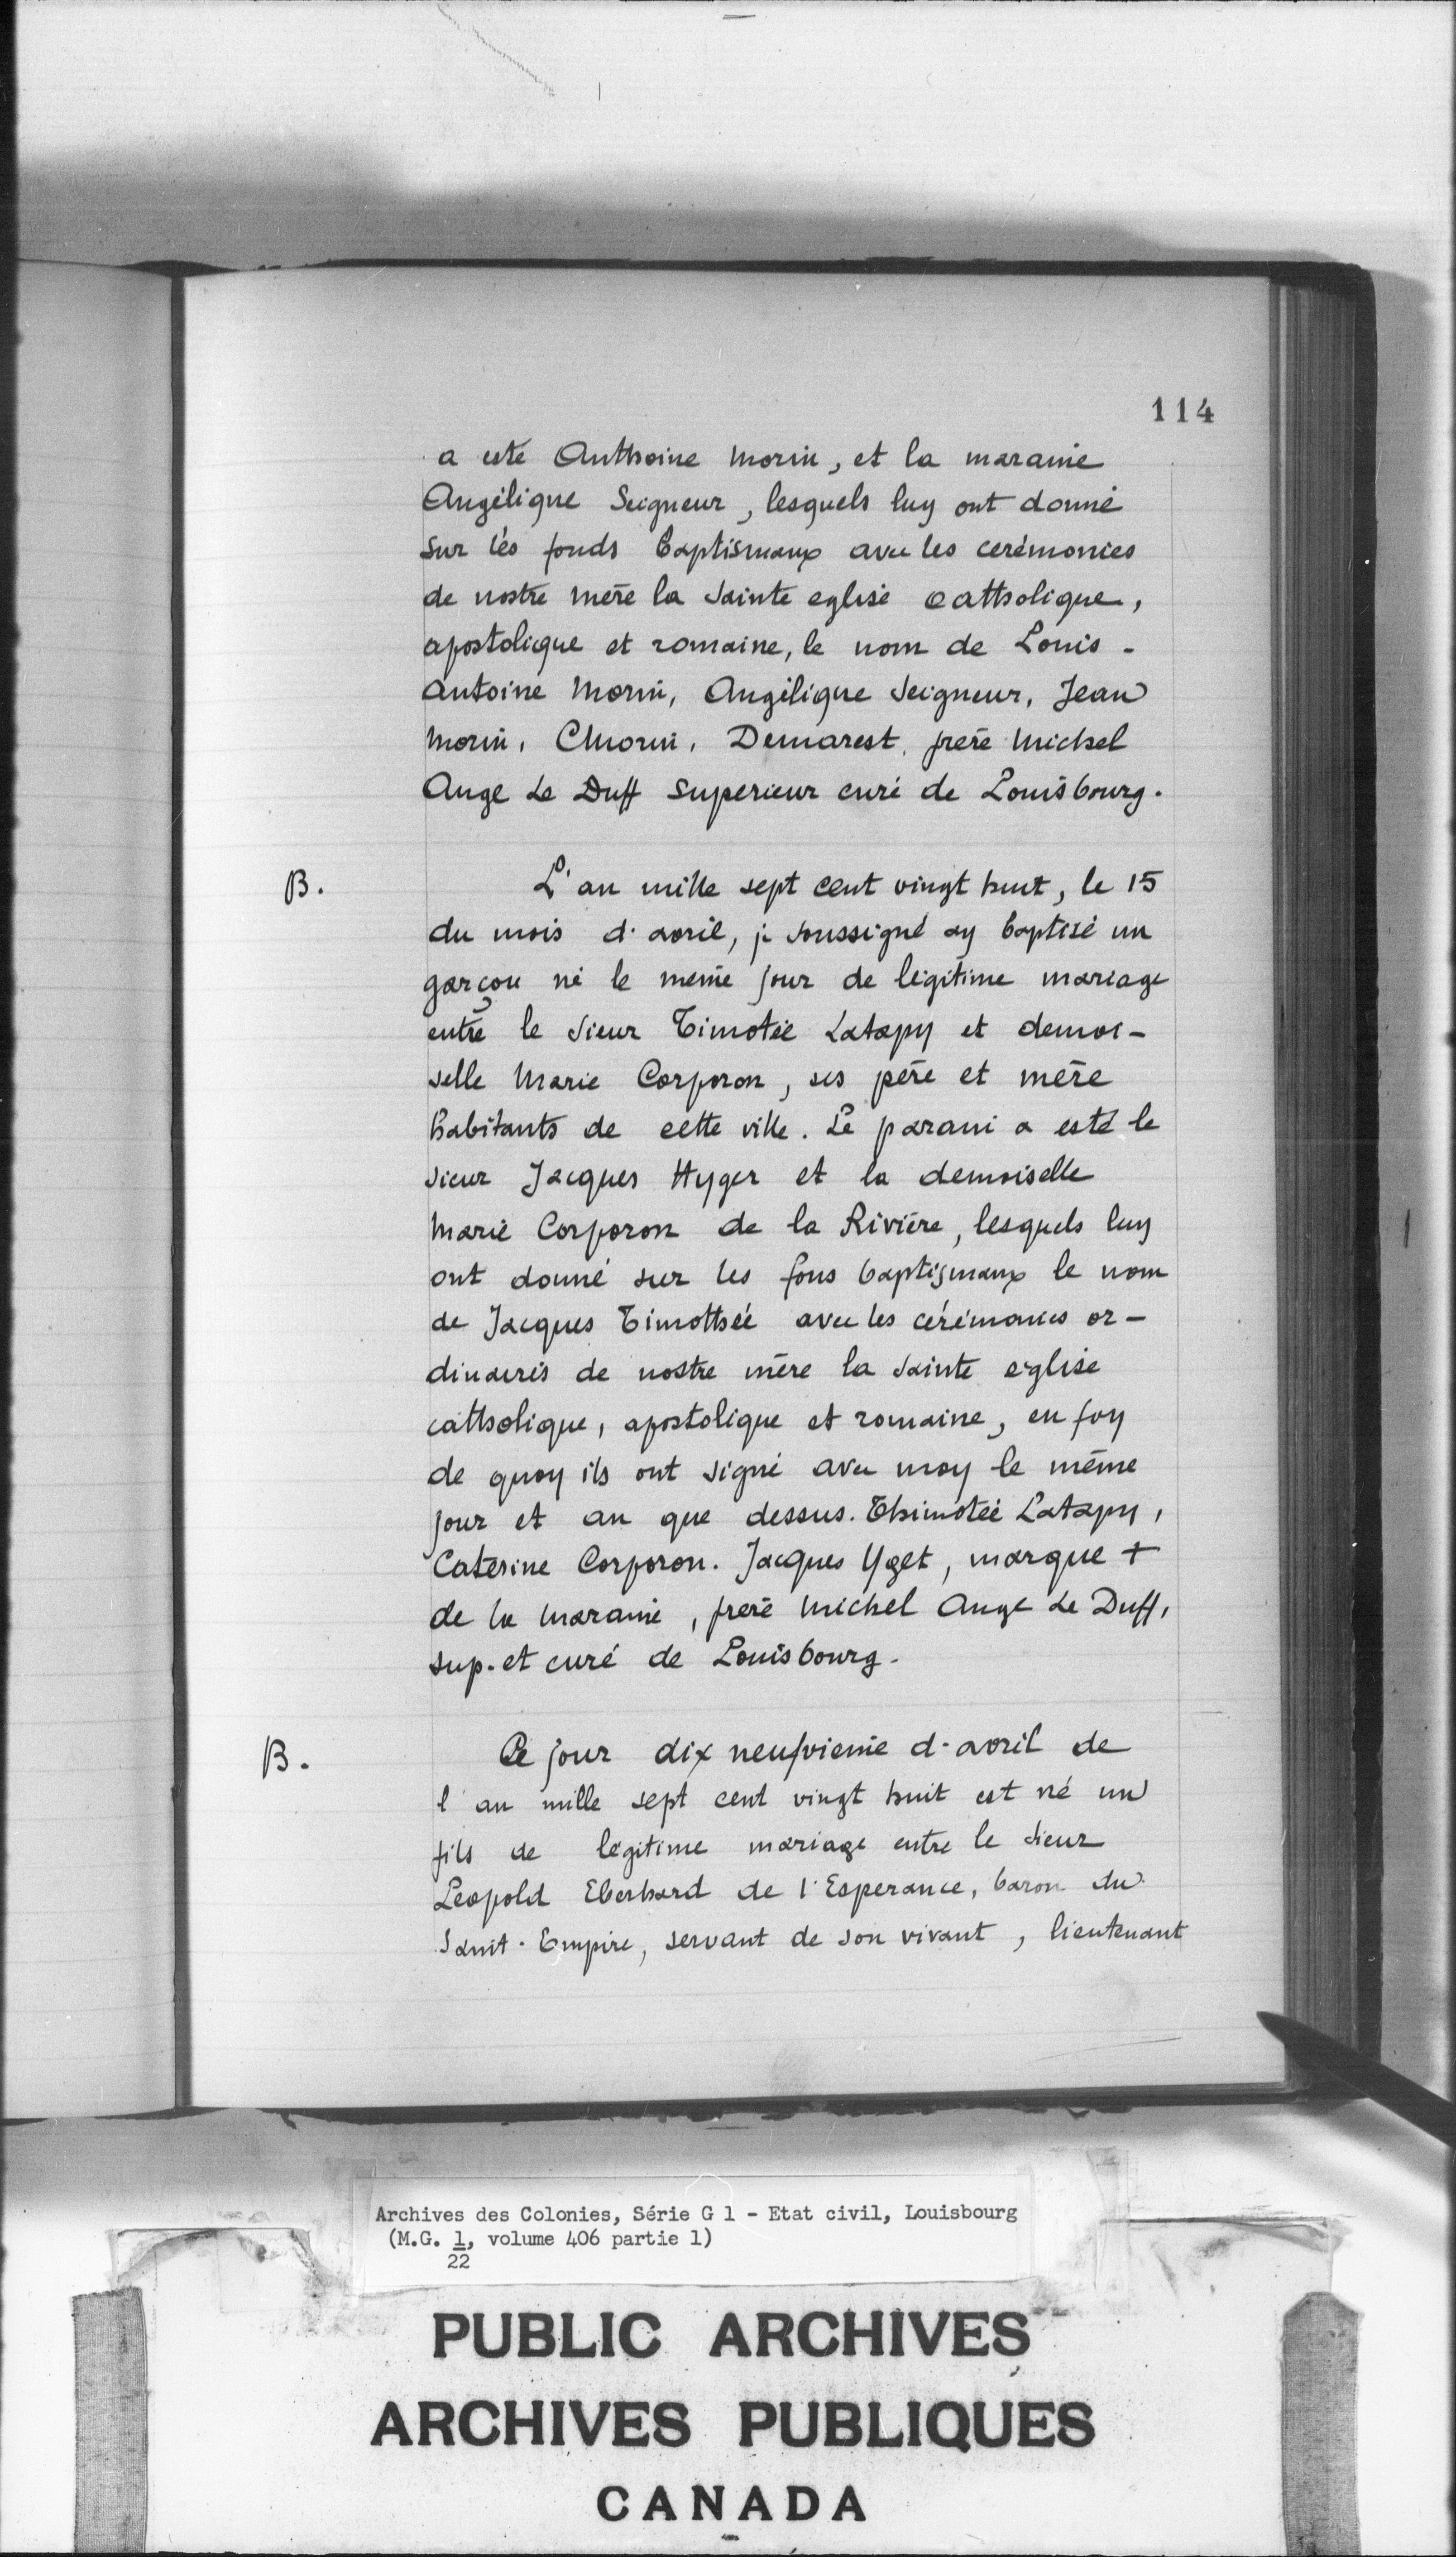 114
a esté Anthoine Morin, et la maraine
Angélique Seigneur, lesquels luy ont donné
sur lés fonds baptismaux avec les cerémonies
de nostre mère la Sainte eglise catholique,
apostolique et romaine, le nom de Louis -
Antoine Morin, Angélique Seigneur, Jean
Morin, CMorin, Demarest, frère Michel
Ange Le Duff superieur curé de Louisbourg.
B. L'an mille sept cent vingt huit, le 15
du mois d'avril, je soussigné ay baptisé un
garçon né le meme jour de légitime mariage
entre le sieur Timotée Latapy et demoi-
selle Marie Corporon, ses père et mère
habitants de cette ville. Le parani a esté le
sieur Jacques Hyger et la demoiselle
Marie Corporon de la Rivière, lesquels luy
ont donné sur les fons baptismaux le nom
de Jacques Timothée avec les cérémonies or-
dinaires de nostre mère la Sainte église
catholique, apostolique et romaine, en foy
de quoy ils ont signé avec moy le même
jour et an que dessus. Thimotée Latapy,
Caterine Corporon. Jacques Yget, marque +
de la maraine, frere Michel Ange Le Duff,
sup. et curé de Louisbourg.
B. Ce jour dix neufvieme d'avril de
l'an mille sept cent vingt huit est né un
fils de légitime mariage entre le sieur
Leopold Eberhard de l'Esperance, baron du
Saint-Empire, servant de son vivant, lieutenant
Archives des Colonies, Série G 1 - Etat civil, Louisbourg
(M.G. 1, volume 406 partie 1)
22
PUBLIC ARCHIVES
ARCHIVES PUBLIQUES
CANADA